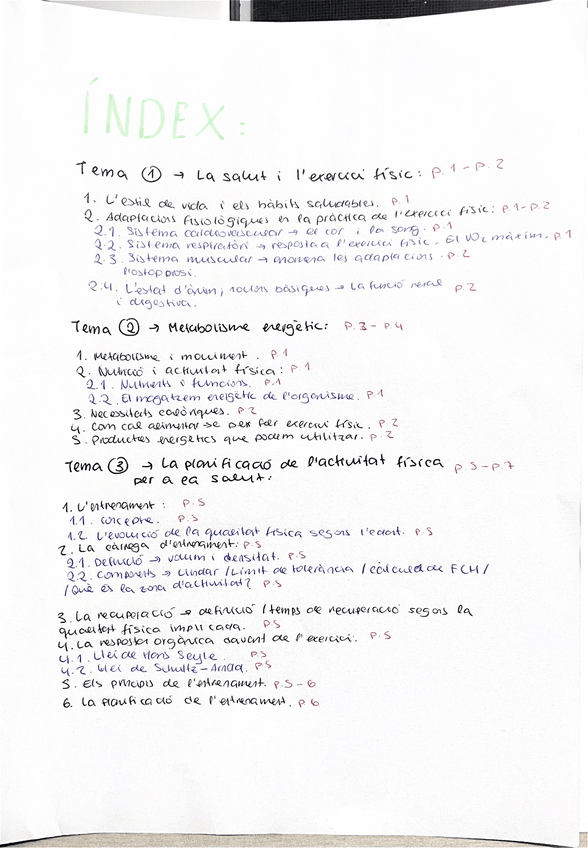 ÍNDEX:
Tema 1 → La salut i l'exercici físic: p.1-p.2
1. L'estil de vida i els hàbits saludables. p.1
2. Adaptacions fisiològiques en la pràctica de l'exercici físic: p.1-p.2
2.1. Sistema cardiovascular → el cor i la sang. p.1
2.2. Sistema respiratòri → resposta a l'exercici físic. El VO2 màxim. p.1
2.3. Sistema muscular → anomena les adaptacions. p.2
l'ostoporosi.
2.4. L'estat d'ànim; ronyons bàsiques → La funció renal p.2
i digestiva.
Tema 2 → Metabolisme energètic: p.3-p.4
1. Metabolisme i moviment. p.1
2. Nutrició i activitat física: p.1
2.1. Nutrients i funcions. p.1
2.2. El magatzem energètic de l'organisme. p.1
3. Necessitats calòriques. p.2
4. Com cal alimentar-se per fer exercici físic. p.2
5. Productes energètics que podem utilitzar. p.2
Tema 3 → La planificació de l'activitat física p.5-p.7
per a la salut:
1. L'entrenament: p.5
1.1. concepte. p.5
1.2. L'evolució de la qualitat física segons l'edat. p.5
2. La càrrega d'entrenament: p.5
2.1. Definició → volum i densitat. p.5
2.2. Components → Llindar / Límit de tolerància / càlcul de FCM /
/ Què és la zona d'activitat? p.5
3. La recuperació → definició / temps de recuperació segons la
qualitat física implicada. p.5
4. La resposta orgànica davant de l'exercici. p.5
4.1. Llei de Hans Seyle. p.5
4.2. Llei de Schultz-Arnold. p.5
5. Els principis de l'entrenament. p.5-6
6. La planificació de l'entrenament. p.6